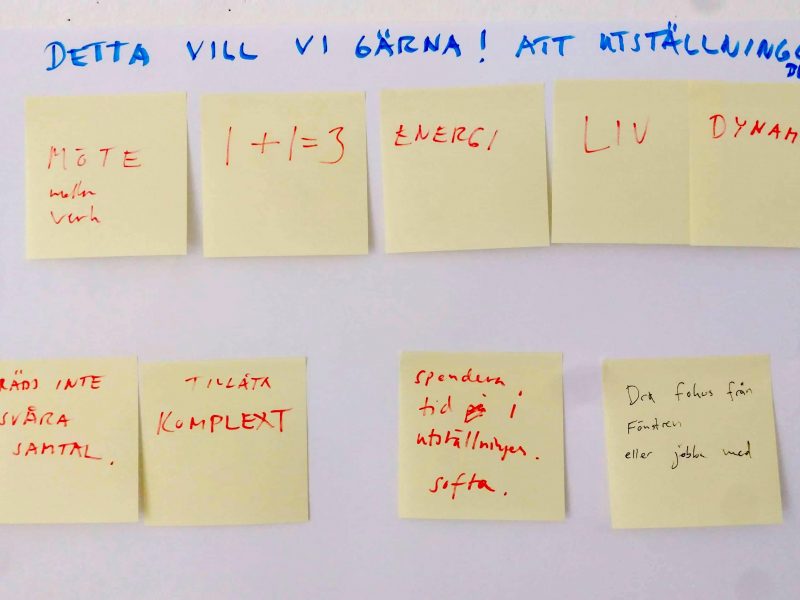 DETTA VILL VI GÄRNA! ATT UTSTÄLLNING
MÖTE
mellan
verk
1+1=3
ENERGI
LIV
DYNAM
RÄDS INTE
SVÅRA
SAMTAL.
TILLÅTA
KOMPLEXT
spendera
tid i
utställningen.
softa.
Dra fokus från
Fönstren
eller jobba med